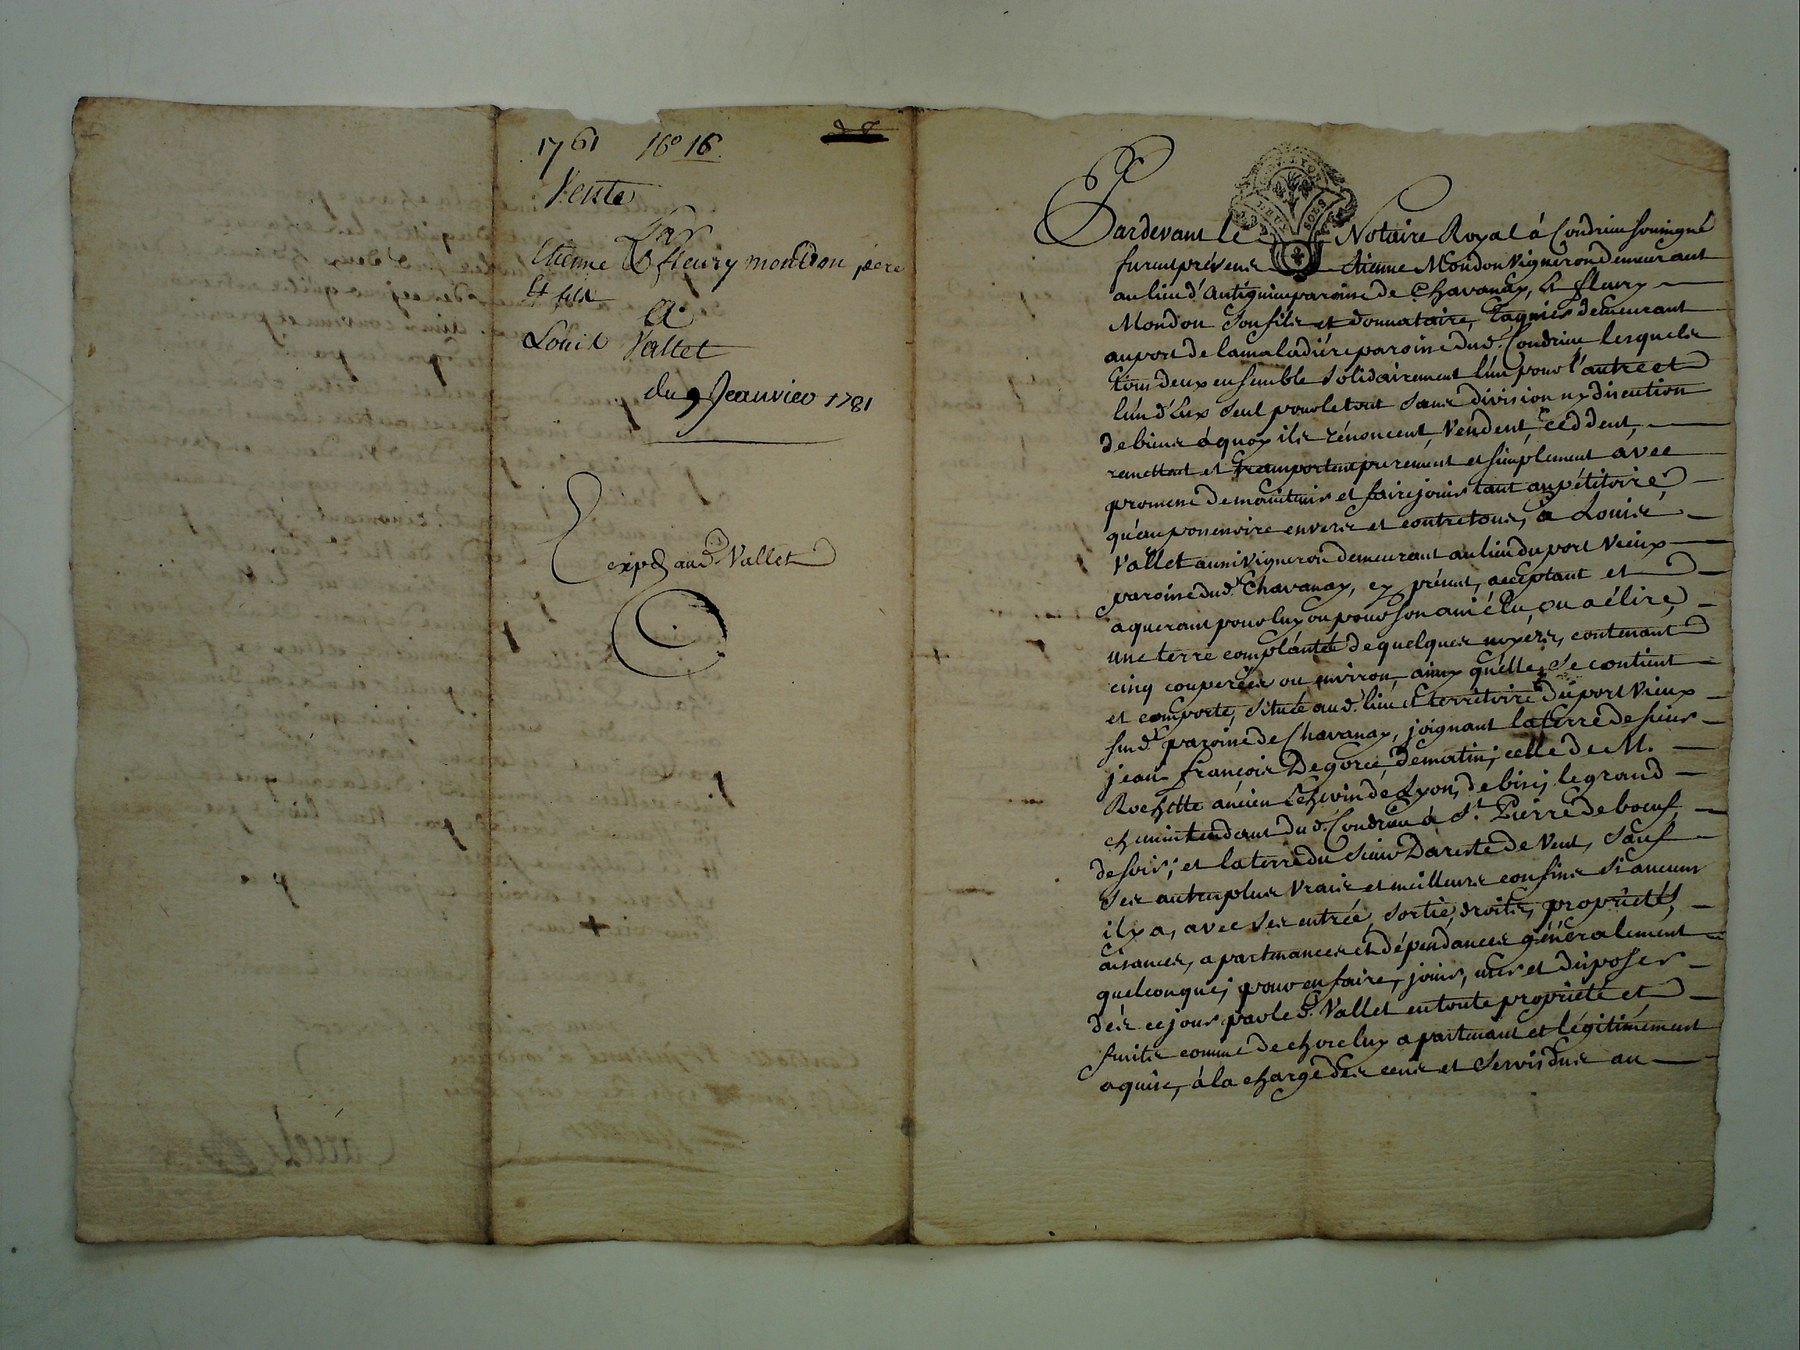 1761 16° 16.
Vente
Par
Etienne & fleury mondon père
& fils
A
Louis Vallet
du 9 Jeanvier 1781
expé. au d. Vallet
Pardevant le Notaire Royal à Condrieu soussigné
furent présens Etienne Mondon Vigneron demeurant
au lieu d'antignieu paroisse de Chavanay, & fleury
Mondon son fils et donnataire, demeurant
au port de la maladière paroisse dud. Condrieu lesquels
tous deux ensemble solidairement l'un pour l'autre et
l'un d'eux seul pour le tout sans division ny discution
de biens à quoy ils rénoncent, vendent, ceddent,
remettent et transportent purement et simplement avec
promesse de maintenir et faire jouir tant au pétitoire
qu'au possessoire envers et contre tous, à Louis
Vallet aussi vigneron demeurant au lieu du port vieux
paroisse dud. Chavanay, cy présent, acceptant et
aquerant pour luy ou pour son ami élu ou a élire,
une terre complantée de quelques noyers, contenant
cinq couperées ou environ, ainsy qu'elle se contient
et comporte, située aud. lieu et territoire du port vieux
sud. paroisse de Chavanay, joignant la terre de sieur
jean françois Degorce, de matin; celle de M.
Rochette ancien Echevin de Lyon, de bise; le grand
chemin tendant dud. Condrieu à St. Pierre de boeuf,
de soir; et la terre du sieur Dareste de vent, sauf
ses autres plus vrais et meilleurs confins si aucuns
il y a, avec ses entrée, sortie, droits, propriétés,
aisances, apartenances et dépendances généralement
quelconques; pour en faire, jouir, user et disposer
dés ce jour par le d. Vallet en toute propriété et
fruits comme de chose luy apartenant et légitimement
aquise, à la charge des cens et servis dus au